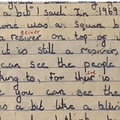 a but I said. In 1969
one was a square b
river
a resiver on top of
it is still a resiver,
can see the people
thing to, for that is
You can see the
is a bit like a